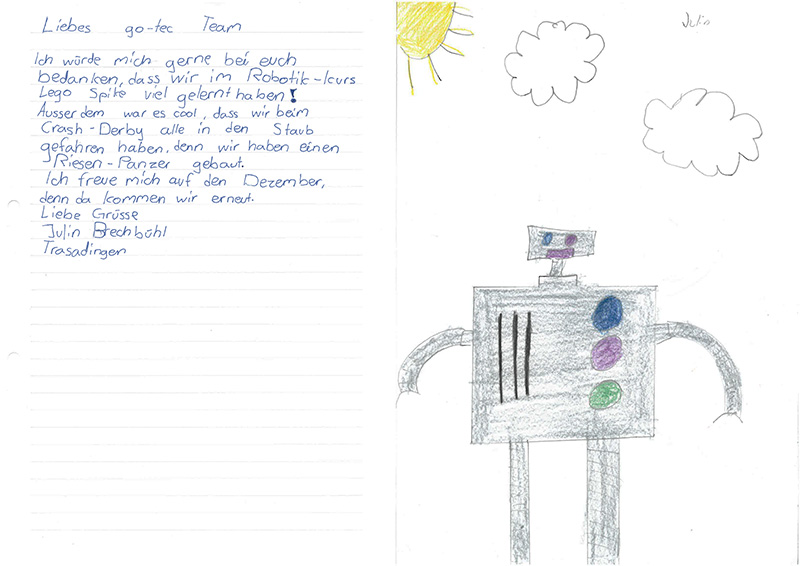 Liebes go-tec Team
Ich würde mich gerne bei euch
bedanken, dass wir im Robotik-kurs
Lego Spike viel gelernt haben!
Ausserdem war es cool, dass wir beim
Crash-Derby alle in den Staub
gefahren haben, denn wir haben einen
Riesen-Panzer gebaut.
Ich freue mich auf den Dezember,
denn da kommen wir erneut.
Liebe Grüsse
Julin Brechbühl
Trasadingen
Julin